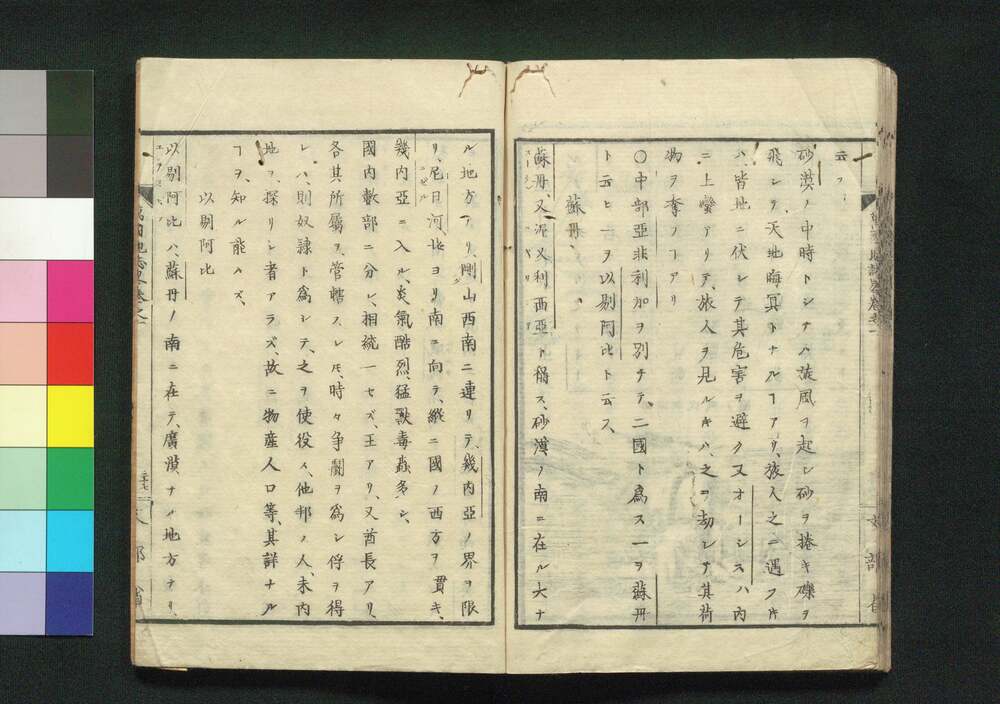 云フ
砂漠ノ中時トシテハ旋風ヲ起シ砂ヲ捲キ礫ヲ
飛シテ天地晦冥トナルヿアリ、旅人之ニ遇フ片
ハ、皆地ニ伏シテ其危害ヲ避ク又オーシスハ内
ニ土蠻アリテ、旅人ヲ見ル片ハ、之ヲ劫シテ其荷
物ヲ奪フヿアリ
〇中部亞非利加ヲ別チテ、二國ト爲ス一ヲ蘇丹
ト云ヒ一ヲ以剔阿比ト云フ、
蘇丹、
蘇丹、又泥叉利西亞ト稱ス、砂漠ノ南ニ在ル大ナ
ル地方ナリ、剛山西南ニ連リテ、幾内亞ノ界ヲ限
リ、尼日河北ヨリ南ニ向テ、縱ニ國ノ西方ヲ貫キ、
幾内亞ニ入ル、炎氣酷烈、猛獸毒蟲多シ、
國内數部ニ分レ、相統一セズ、王アリ、又酋長アリ、
各其所屬ヲ管轄スレ𪜈、時々争鬪ヲ爲シ俘ヲ得
レハ、則奴隷ト爲シテ、之ヲ使役ス、他邦ノ人、未内
地ヲ、探リシ者アラズ、故ニ物産人口等、其詳ナル
ヿヲ、知ル能ハズ、
以剔阿比
以剔阿比ハ、蘇丹ノ南ニ在テ、廣漠ナル地方ナリ、
文部省